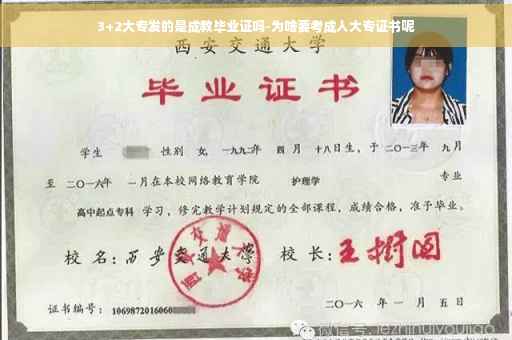 3+2大专发的是成教毕业证吗-为啥要考成人大专证书呢
西安交通大学
毕业证书
学生 性别 女, 一九九二年 四月 十八日生, 于 二〇一三年 九月
至 二〇一六年 一月在本校网络教育学院 护理学 专业
高中起点专科 学习, 修完教学计划规定的全部课程, 成绩合格, 准予毕业。
校 名: 西安交通大学 校 长: 王树国
西安交通大学
证书编号: 1069872016060
二〇一六 年 一 月 五 日
微信号: jezhinuiyoujiao